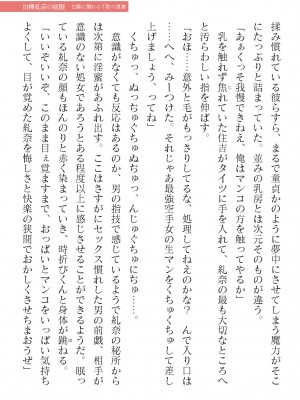 揉み慣れている彼らすら、まるで童貞かのように夢中にさせてしまう魔力がそこ
にたっぷりと詰まっていた。並みの乳房とは次元そのものが違う。
「あぁくっそ我慢できねえ、俺はマンコの方を触ってやるか」
乳を触れず焦れていた住吉がタイツに手を入れて、紜奈の最も大切なところへ
と汚らわしい指を伸ばす。
「おほ……意外と毛がもっさりしてるな、処理してねえのかな？　んで入り口は
……へへ、みーつけた。それじゃあ最強空手女の生マンをくちゅくちゅして差し
上げましょう、ってね」
くちゅっ、ぬっちゅぐちゅぐちゅっ、んじゅぐちゅにちゅ……。
意識がなくても反応はあるのか、男の指技で感じているようで紜奈の秘所から
は次第に淫蜜があふれ出す。ここはさすがにセックス慣れした男の前戯、相手が
意識のない処女であろうとある程度以上に感じさせることができるようだ。眠っ
ている紜奈の顔もほんのりと赤く染まっていき、時折びくんと身体が跳ねる。
「いいぞいいぞ、このまま目ぇ覚ますまで、おっぱいとマンコをいっぱい気持ち
よくして、目が覚めた紜奈を悔しさと快楽の狭間でおかしくさせちまおうぜ」